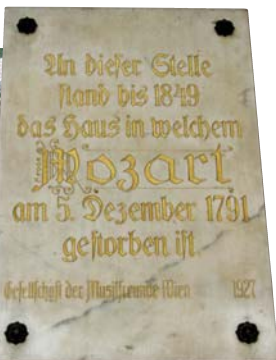 An dieser Stelle
stand bis 1849
das Haus in welchem
Mozart
am 5. Dezember 1791
gestorben ist
Gesellschaft der Musikfreunde Wien 1927